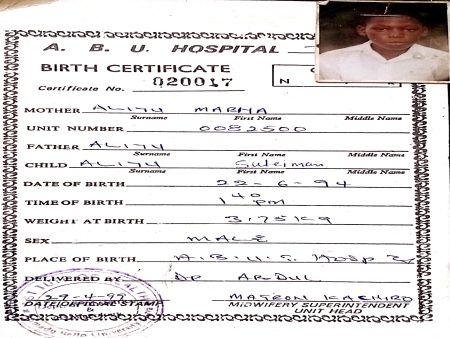 A. B. U. HOSPITAL
BIRTH CERTIFICATE
Certificate No. 020017 N
MOTHER ALIYU MARHA
Surname First Name Middle Name
UNIT NUMBER 0082500
Surname First Name Middle Name
FATHER ALIYU
Surname First Name Middle Name
CHILD ALIYU Suleiman
Surname First Name Middle Name
DATE OF BIRTH 22-6-94
TIME OF BIRTH 1 40 pm
WEIGHT AT BIRTH 3.75kg
SEX MALE
PLACE OF BIRTH A.B.U.S. Hosp
DELIVERED BY DR
29-4-97 MATRON
DATE/OFFICIAL STAMP MIDWIFERY SUPERINTENDENT
UNIT HEAD